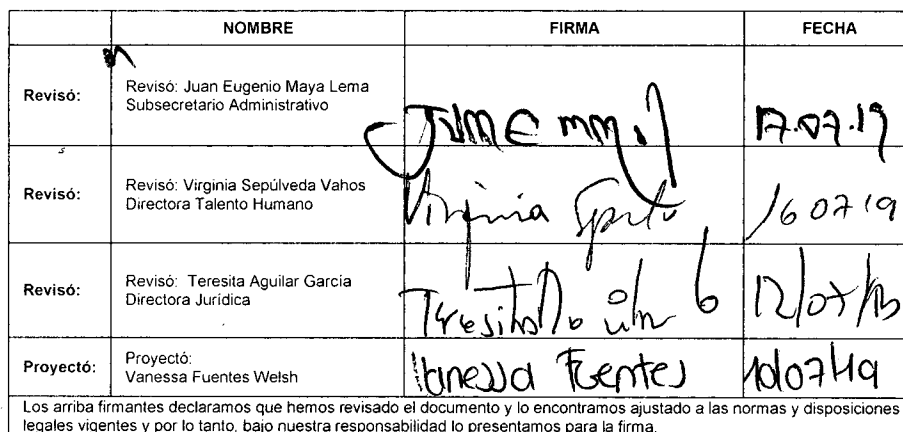 NOMBRE FIRMA FECHA
Revisó: Revisó: Juan Eugenio Maya Lema
Subsecretario Administrativo
17.07.19
Revisó: Revisó: Virginia Sepúlveda Vahos
Directora Talento Humano
Virginia
16 07 19
Revisó: Revisó: Teresita Aguilar García
Directora Jurídica
Teresita
12/07/19
Proyectó: Proyectó:
Vanessa Fuentes Welsh
Vanessa Fuentes 10/07/19
Los arriba firmantes declaramos que hemos revisado el documento y lo encontramos ajustado a las normas y disposiciones
legales vigentes y por lo tanto, bajo nuestra responsabilidad lo presentamos para la firma.